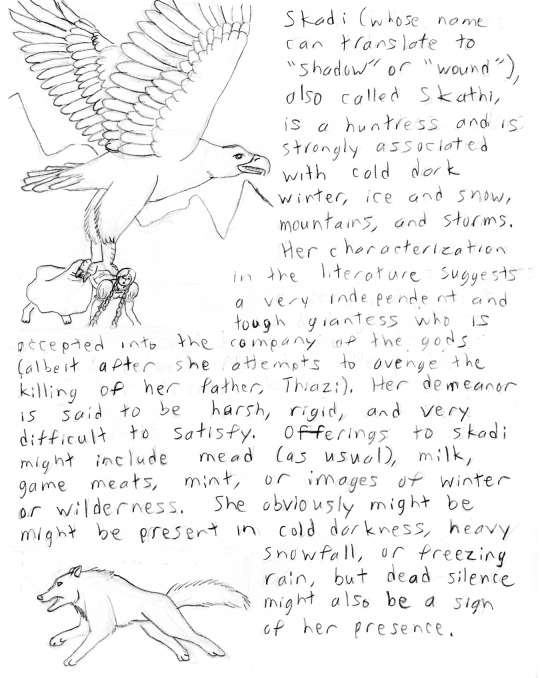 Skadi (whose name
can translate to
"shadow" or "wound"),
also called Skathi,
is a huntress and is
strongly associated
with cold dark
winter, ice and snow,
mountains, and storms.
Her characterization
in the literature suggests
a very independent and
tough giantess who is
accepted into the company of the gods
(albeit after she attempts to avenge the
killing of her father, Thiazi). Her demeanor
is said to be harsh, rigid, and very
difficult to satisfy. Offerings to skadi
might include mead (as usual), milk,
game meats, mint, or images of winter
or wilderness. She obviously might be
might be present in cold darkness, heavy
snowfall, or freezing
rain, but dead silence
might also be a sign
of her presence.